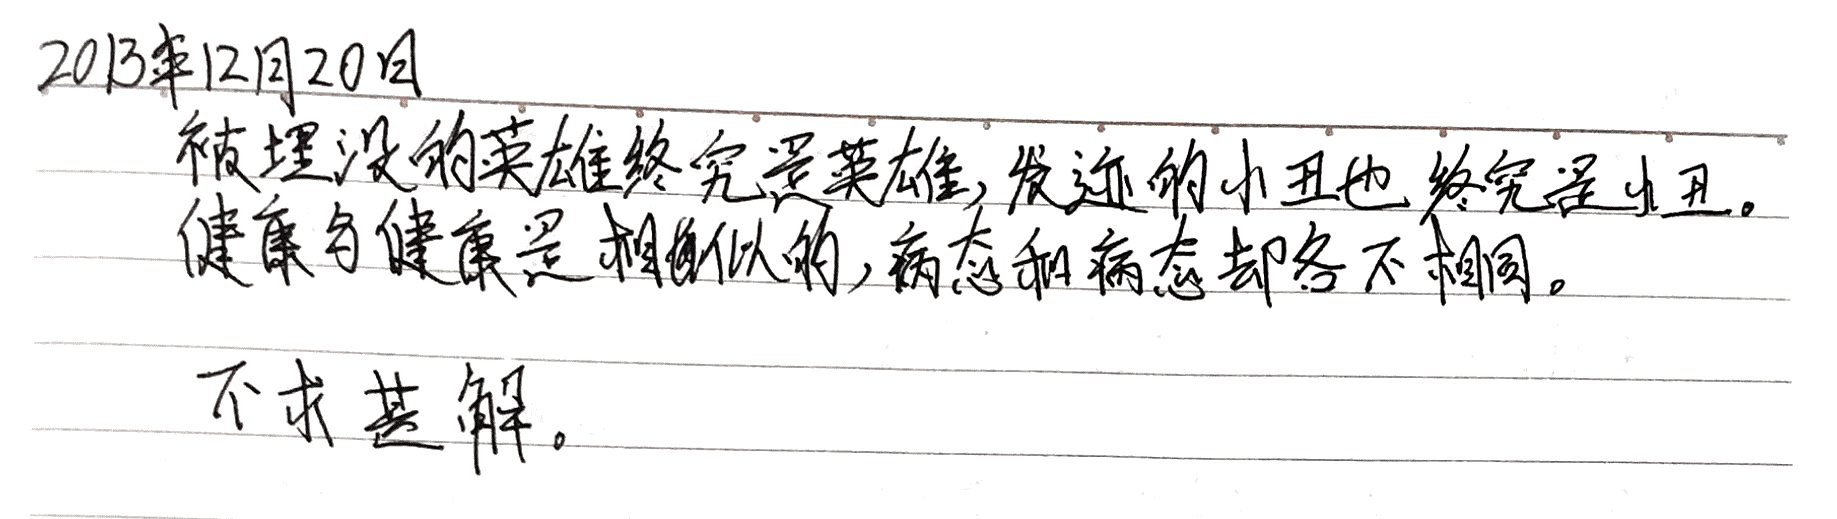 2013年12月20日
被埋没的英雄终究是英雄，发迹的小丑也终究是小丑。
健康与健康是相似的，病态和病态却各不相同。
不求甚解。